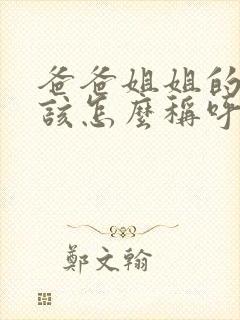 爸爸姐姐的
該怎麼稱呼
鄭文翰